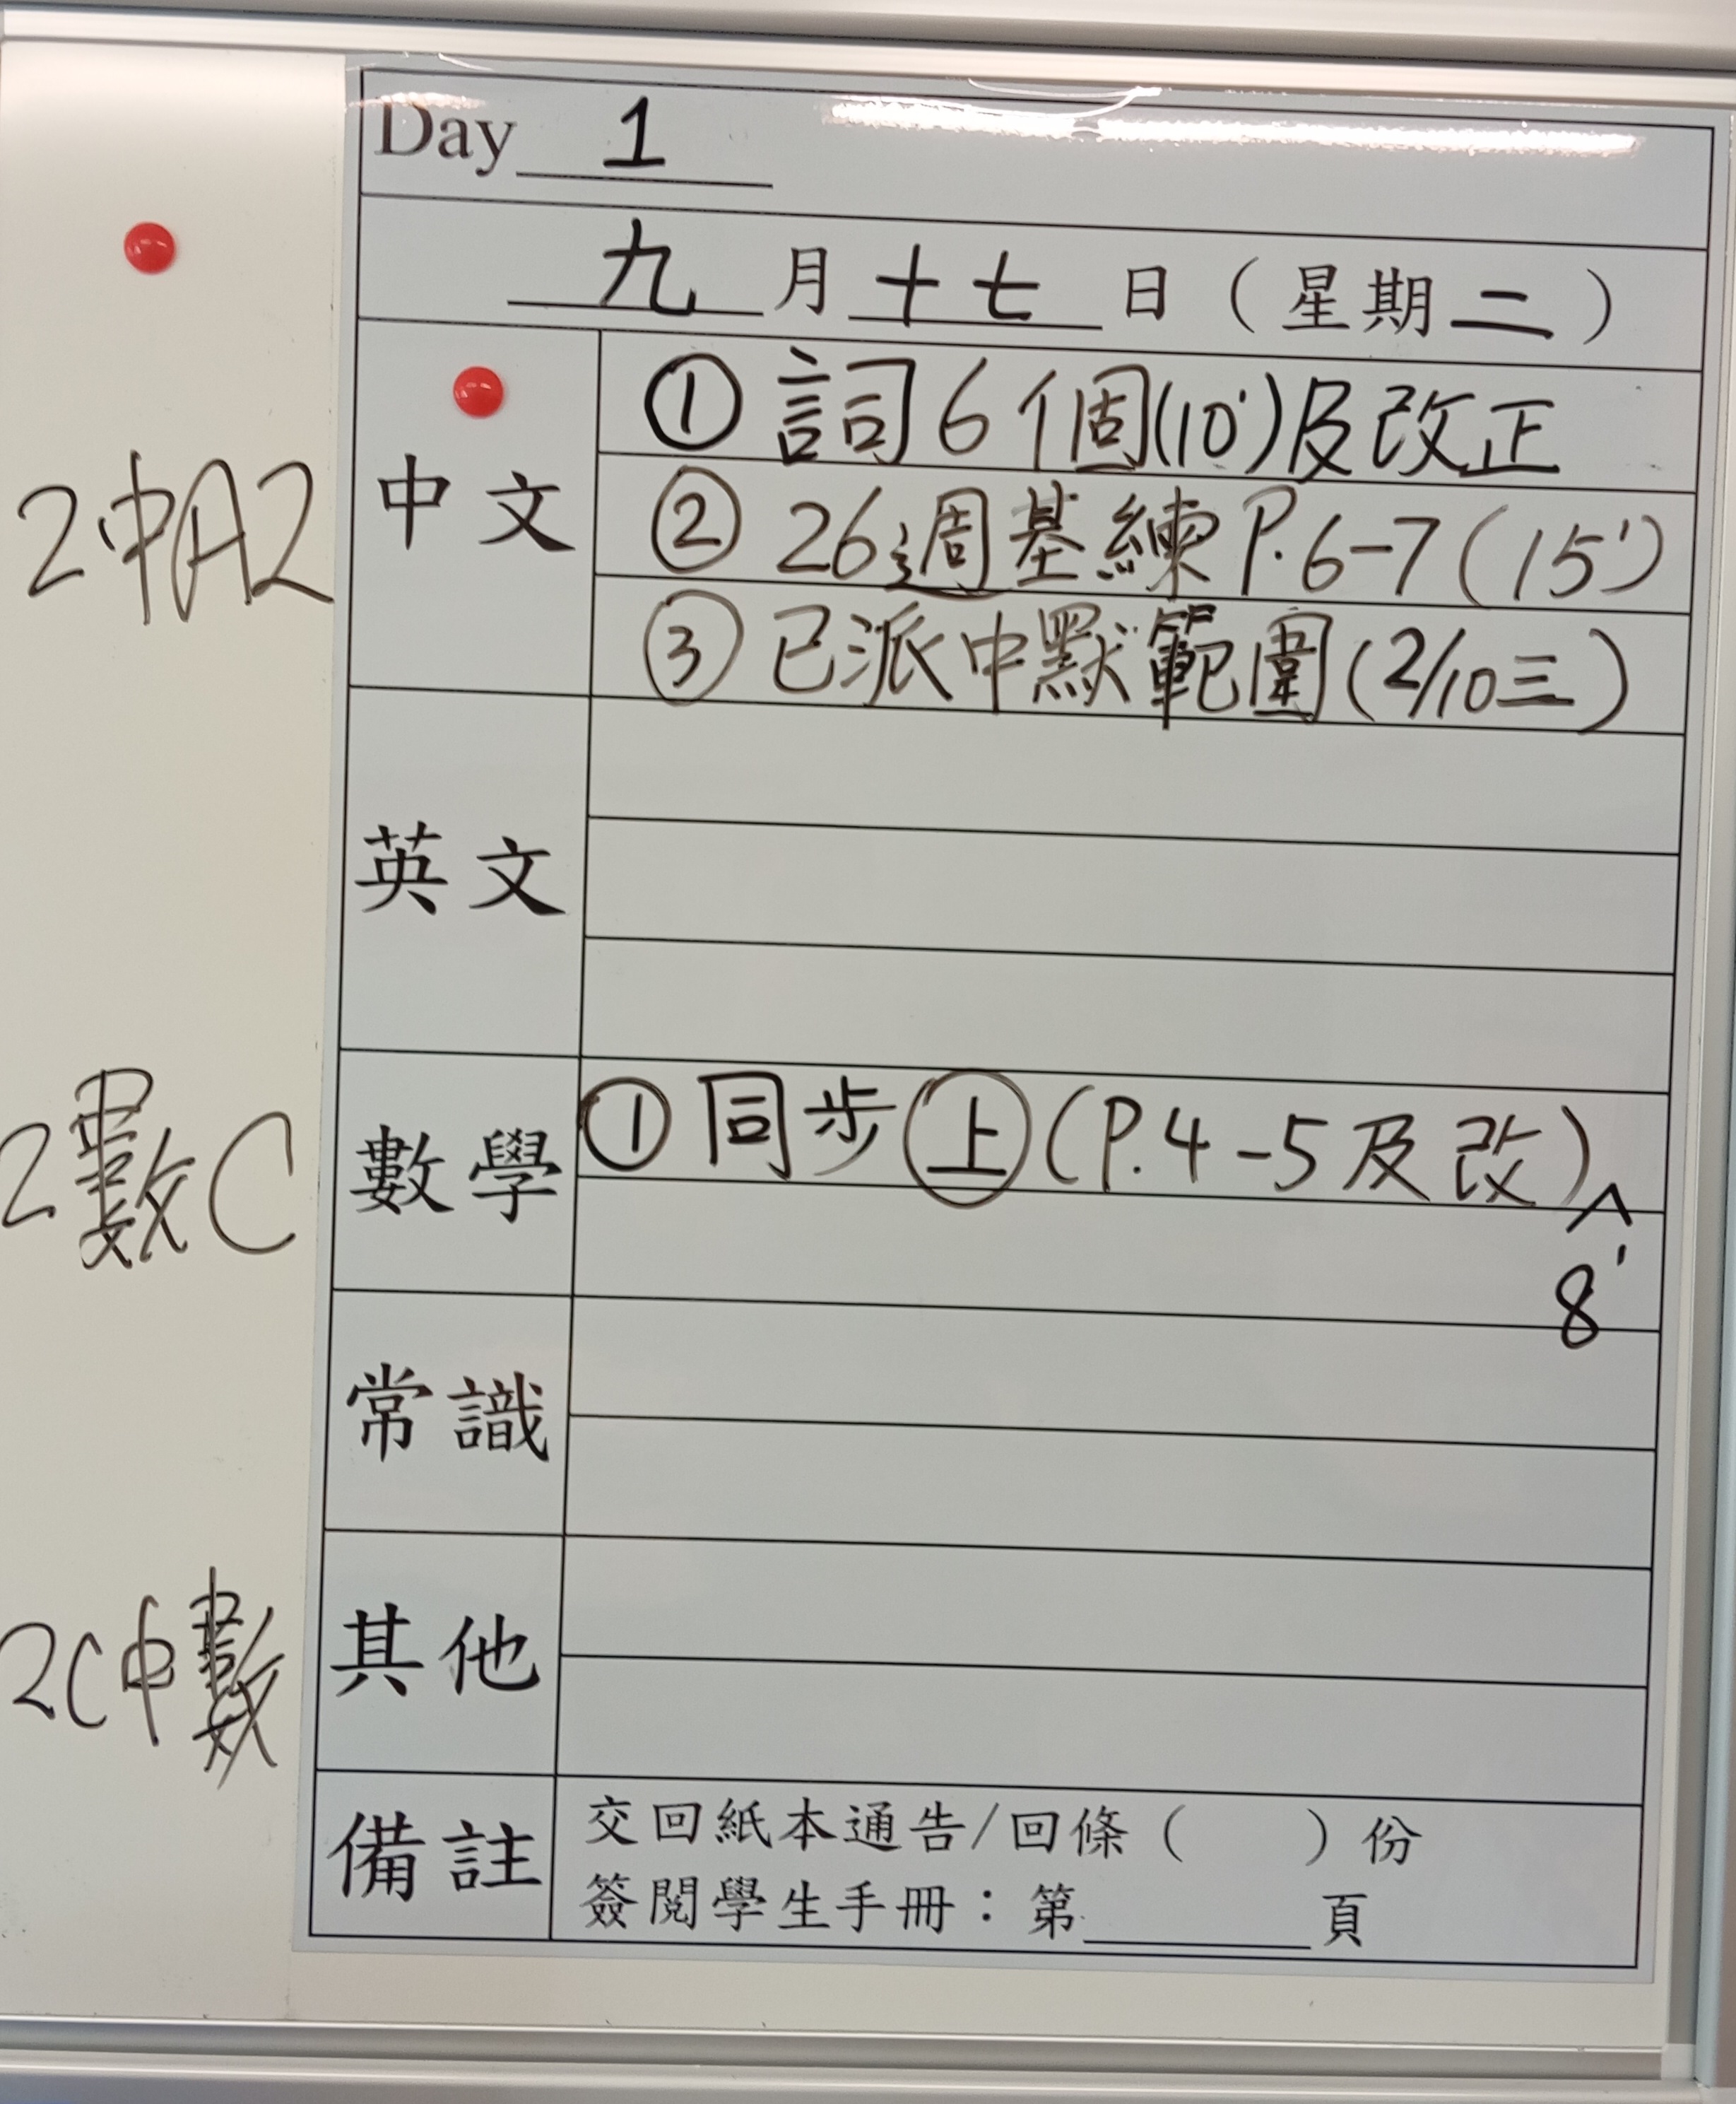 Day 1
九月十七日（星期二）
2中A2
中文
① 詞6個(10')及改正
② 26週基練P.6-7(15')
③ 已派中默範圍(2/10三)
英文
2數C
數學
① 同步上(P.4-5及改)^
8'
常識
2C中數
其他
備註
交回紙本通告/回條（　　）份
簽閱學生手冊：第______頁